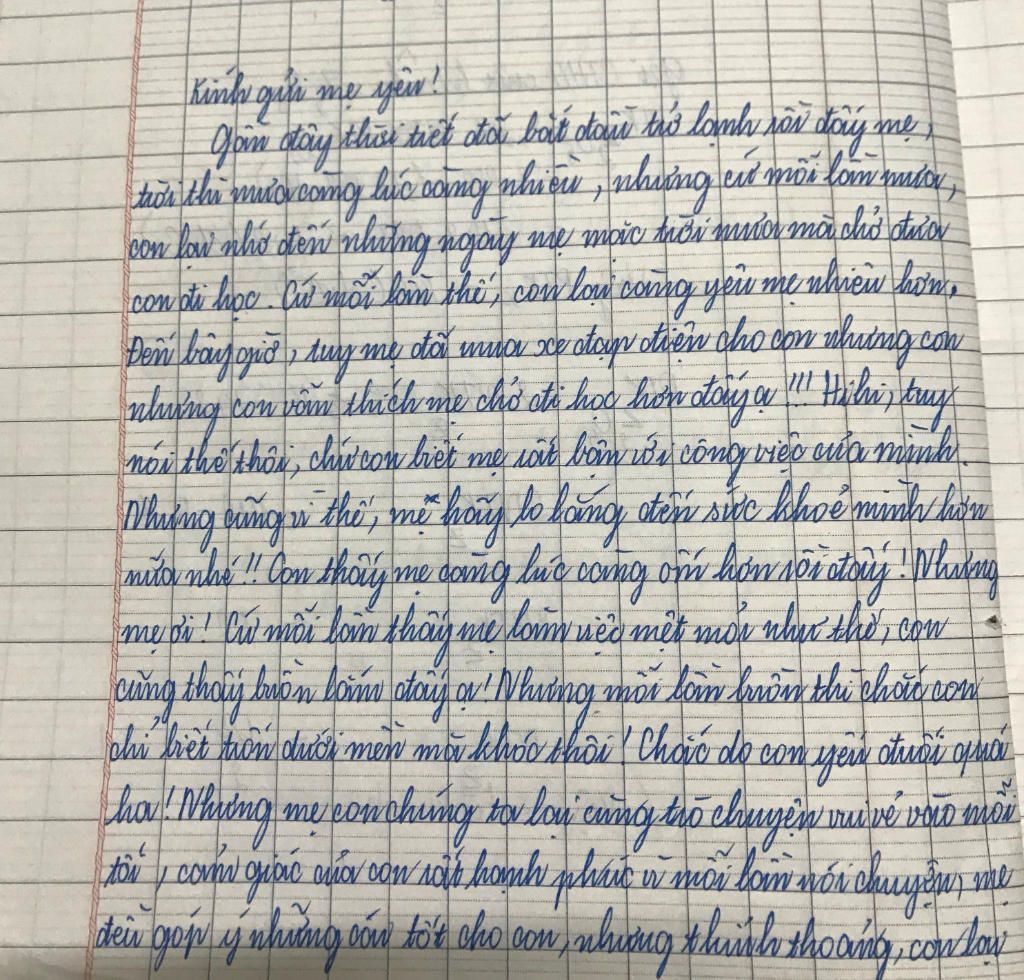 Kính gửi mẹ yêu!
Gần đây thời tiết đã bắt đầu trở lạnh rồi đấy mẹ,
trời thì mưa càng lúc càng nhiều, nhưng cứ mỗi lần mưa,
con lại nhớ đến những ngày mẹ mặc trời mưa mà chở đưa
con đi học. Cứ mỗi lần thế, con lại càng yêu mẹ nhiều hơn.
Đến bây giờ, tuy mẹ đã mua xe đạp điện cho con nhưng con
nhưng con vẫn thích mẹ chở đi học hơn đấy ạ!!! Hihi, tuy
nói thế thôi, chứ con biết mẹ rất bận với công việc của mình.
Nhưng cũng vì thế, mẹ hãy lo lắng đến sức khoẻ mình hơn
nữa nhé!! Con thấy mẹ càng lúc càng ốm hơn rồi đấy! Nhưng
mẹ ơi! Cứ mỗi lần thấy mẹ làm việc mệt mỏi như thế, con
cũng thấy buồn lắm đấy ạ! Nhưng mỗi lần buồn thì chắc con
chỉ biết trốn dưới mền mà khóc thôi! Chắc do con yếu đuối quá
ha! Nhưng mẹ con chúng ta lại cùng trò chuyện vui vẻ vào mỗi
tối, cảm giác của con rất hạnh phúc vì mỗi lần nói chuyện, mẹ
đều góp ý những cái tốt cho con, nhưng thỉnh thoảng, con lại